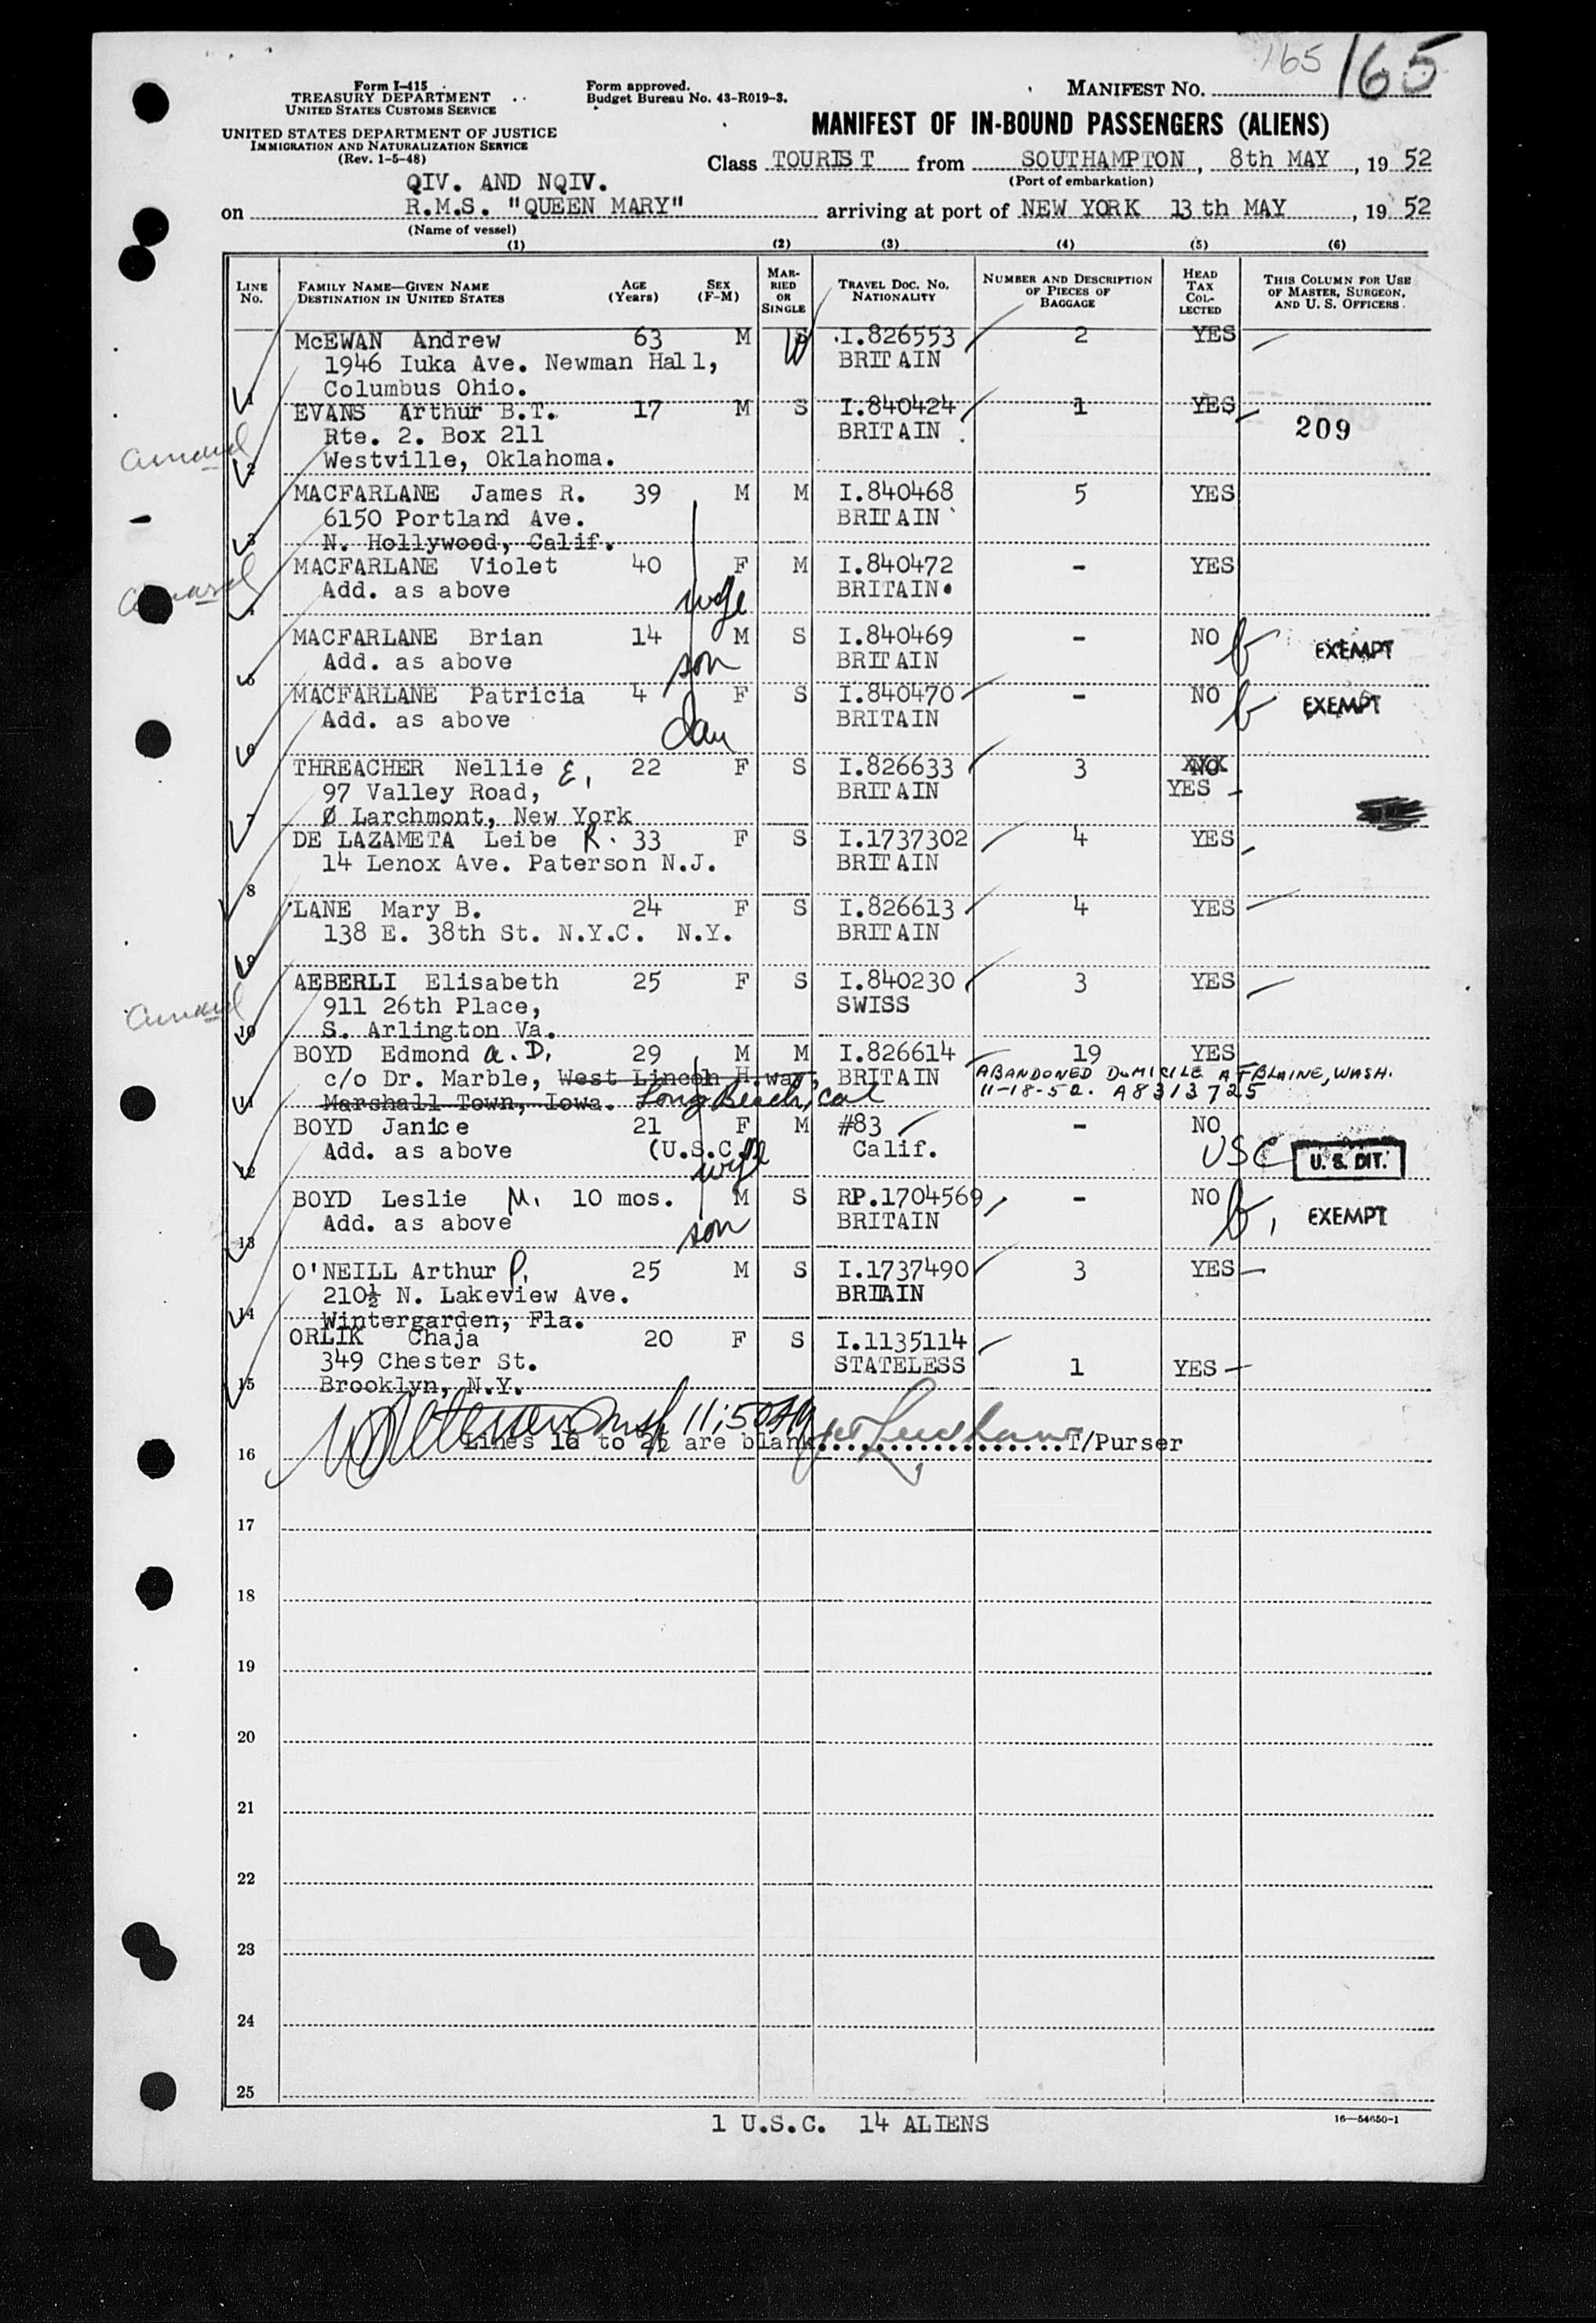 165 165
Form I-415
TREASURY DEPARTMENT
UNITED STATES CUSTOMS SERVICE
UNITED STATES DEPARTMENT OF JUSTICE
IMMIGRATION AND NATURALIZATION SERVICE
(Rev. 1-5-48)
Form approved.
Budget Bureau No. 43-R019-3.
MANIFEST NO.
MANIFEST OF IN-BOUND PASSENGERS (ALIENS)
Class TOURIST from SOUTHAMPTON, 8th MAY, 19 52
(Port of embarkation)
QIV. AND NQIV.
on R.M.S. "QUEEN MARY" arriving at port of NEW YORK 13th MAY, 19 52
(Name of vessel)
(1) (2) (3) (4) (5) (6)
LINE NO. FAMILY NAME—GIVEN NAME DESTINATION IN UNITED STATES AGE (Years) SEX (F-M) MARRIED OR SINGLE TRAVEL DOC. NO. NATIONALITY NUMBER AND DESCRIPTION OF PIECES OF BAGGAGE HEAD TAX COLLECTED THIS COLUMN FOR USE OF MASTER, SURGEON, AND U. S. OFFICERS
McEWAN Andrew 63 M S W I.826553 2 YES
1946 Iuka Ave. Newman Hall, BRITAIN
1 Columbus Ohio.
EVANS Arthur B.T. 17 M S I.840424 1 YES
Rte. 2. Box 211 BRITAIN 209
2 Westville, Oklahoma.
MACFARLANE James R. 39 M M I.840468 5 YES
6150 Portland Ave. BRITAIN
3 N. Hollywood, Calif.
MACFARLANE Violet 40 F M I.840472 - YES
4 Add. as above wife BRITAIN
MACFARLANE Brian 14 M S I.840469 - NO EXEMPT
5 Add. as above son BRITAIN
MACFARLANE Patricia 4 F S I.840470 - NO EXEMPT
6 Add. as above dau BRITAIN
THREACHER Nellie E. 22 F S I.826633 3 NO
97 Valley Road, BRITAIN YES
7 Larchmont, New York
DE LAZAMETA Leibe R. 33 F S I.1737302 4 YES
14 Lenox Ave. Paterson N.J. BRITAIN
8
LANE Mary B. 24 F S I.826613 4 YES
138 E. 38th St. N.Y.C. N.Y. BRITAIN
9
AEBERLI Elisabeth 25 F S I.840230 3 YES
911 26th Place, SWISS
10 S. Arlington Va.
BOYD Edmond A. D. 29 M M I.826614 19 YES
c/o Dr. Marble, West Lincoln H.way, BRITAIN ABANDONED DOMICILE AT BLAINE, WASH.
11 Marshall Town, Iowa. Long Beach, Cal 11-18-52. A8313725
BOYD Janice 21 F M #83 - NO
12 Add. as above (U.S.C.) wife Calif. USC U. S. CIT.
BOYD Leslie M. 10 mos. M S RP.1704569 - NO EXEMPT
13 Add. as above son BRITAIN
O'NEILL Arthur P. 25 M S I.1737490 3 YES
210½ N. Lakeview Ave. BRITAIN
14 Wintergarden, Fla.
ORLIK Chaja 20 F S I.1135114
349 Chester St. STATELESS 1 YES
15 Brooklyn, N.Y.
11:50
16 Lines 16 to 25 are blank T/Purser
17
18
19
20
21
22
23
24
25
1 U.S.C. 14 ALIENS
16—54650-1